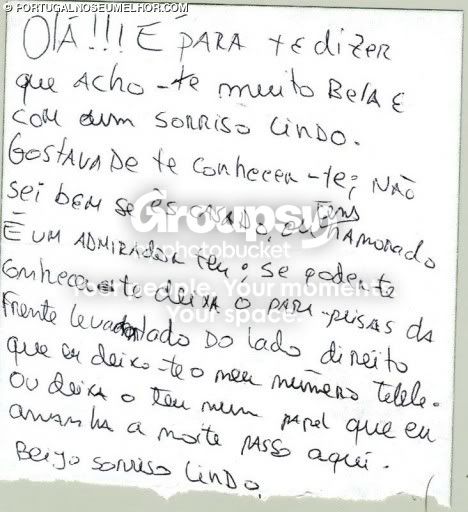 © PORTUGALNOSEUMELHOR.COM
OLÁ!!! É PARA te dizer
que ACHO-te muito Bela E
com dum SORRISO LINDO.
GOSTAVA De te conhecer-te; NÃO
sei bem se es casado, ou Tens NAMORADO
É UM ADMIRADOR teu. Se poder te
conhecer-te deixa o PARA-PRISAS da
frente levantado DO lado direito
que eu deixo-te o meu número telele.
OU deixa o teu num papel que eu
amanha a noite passo aqui.
Beijo sorriso LINDO.
Groupsy
photobucket
Your people. Your moments.
Your space.